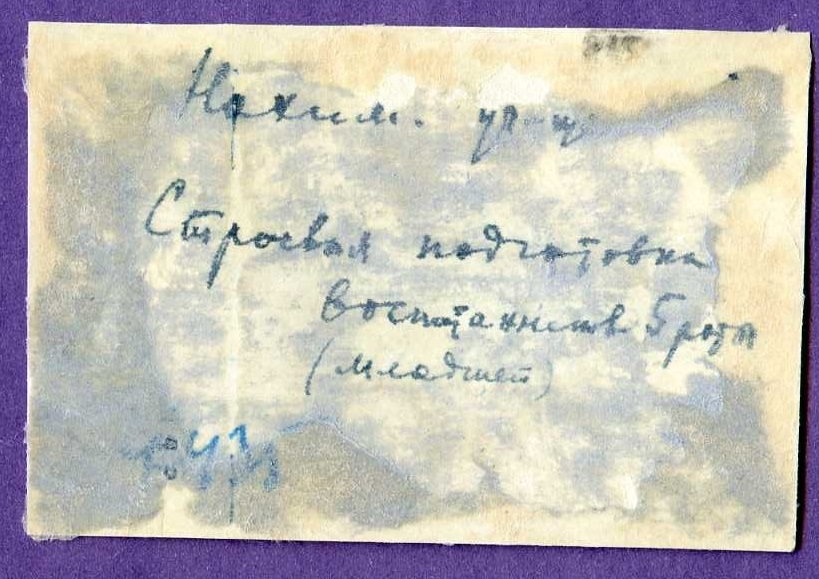 Нахим. уч-щ
Строевая подготовка
воспитанников 5 роты
(младшей)